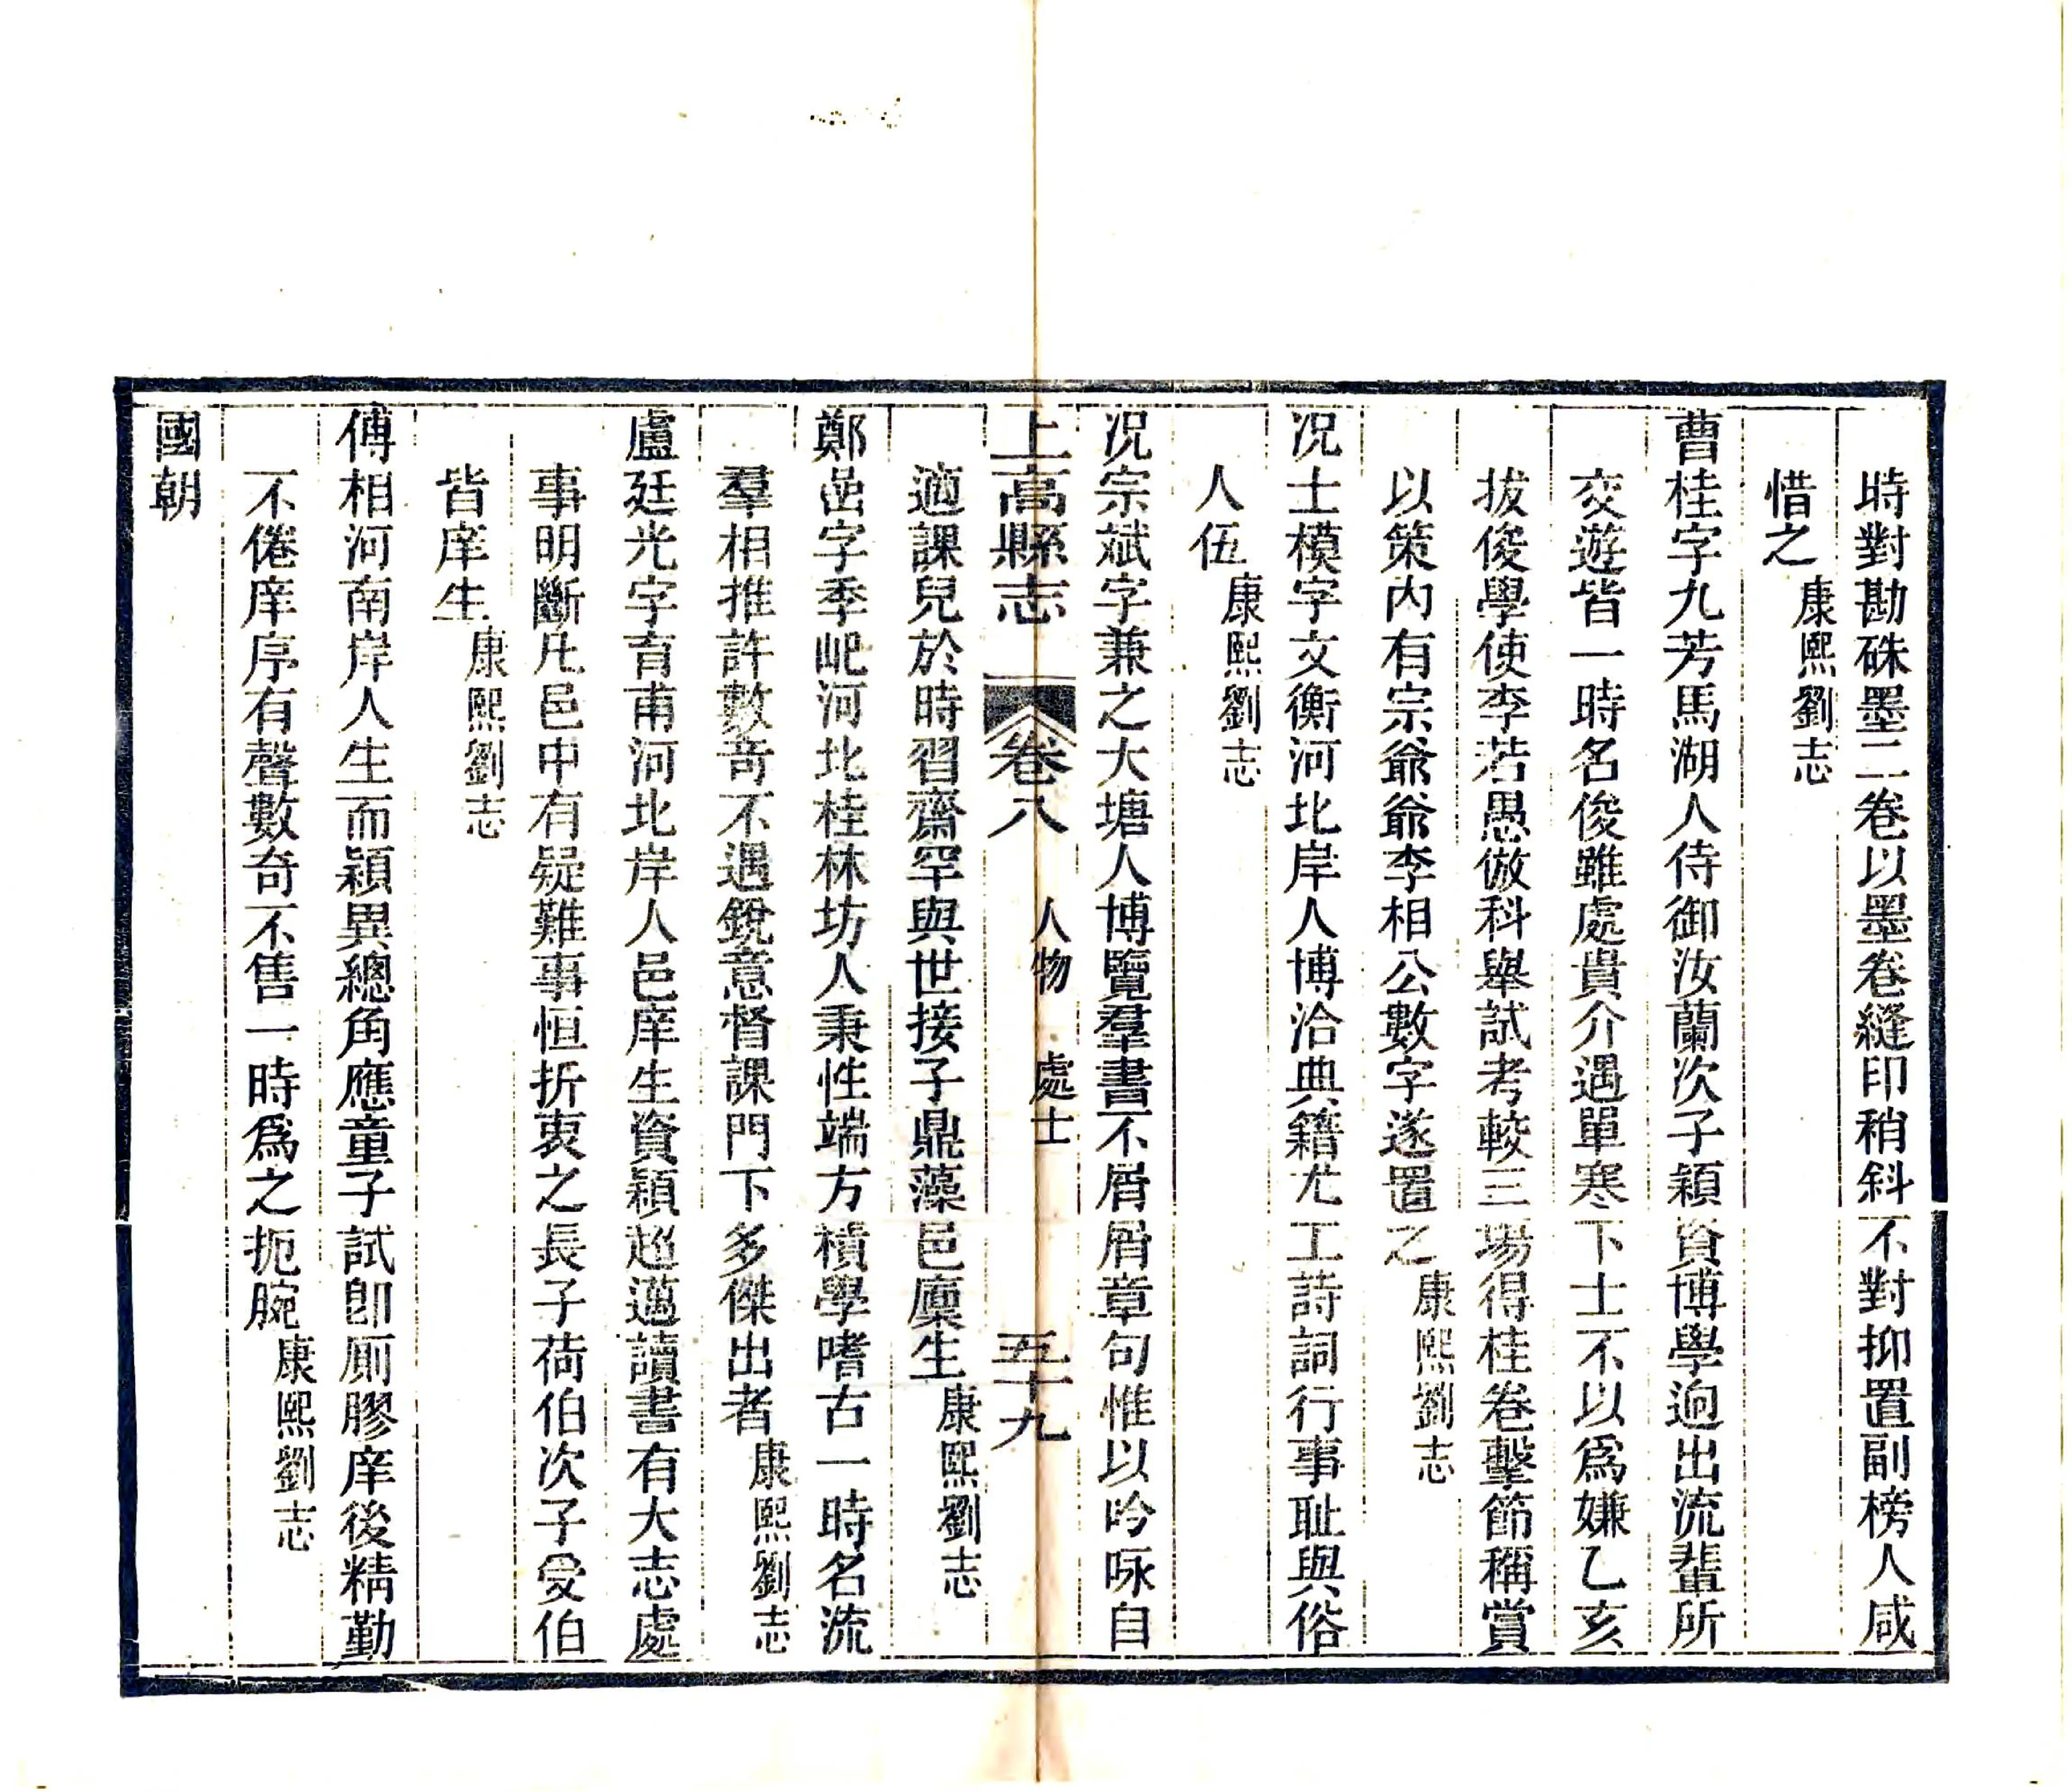 時對勘硃墨二卷以墨卷縫印稍斜不對抑置副榜人咸
惜之康熙劉志
曹桂字九芳馬湖人侍御汝蘭次子穎資博學逈出流輩所
交遊皆一時名俊雖處貴介遇單寒下士不以爲嫌乙亥
拔俊學使李若愚倣科舉試考較三場得桂卷擊節稱賞
以策內有宗爺爺李相公數字遂置之康熙劉志
况士模字文衡河北岸人博洽典籍尤工詩詞行事耻與俗
人伍康熙劉志
况宗斌字兼之大塘人博覽羣書不屑屑章句惟以吟咏自
上高縣志 卷八 人物 處士 五十九
適課兒於時習齋罕與世接子鼎藻邑廩生康熙劉志
鄭嵒字季岯河北桂林坊人秉性端方積學嗜古一時名流
羣相推許數竒不遇銳意督課門下多傑出者康熙劉志
盧廷光字育甫河北岸人邑庠生資穎超邁讀書有大志處
事明斷凡邑中有疑難事恒折衷之長子荷伯次子受伯
皆庠生康熙劉志
傅相河南岸人生而穎異總角應童子試卽厠膠庠後精勤
不倦庠序有聲數奇不售一時爲之扼腕康熙劉志
國朝